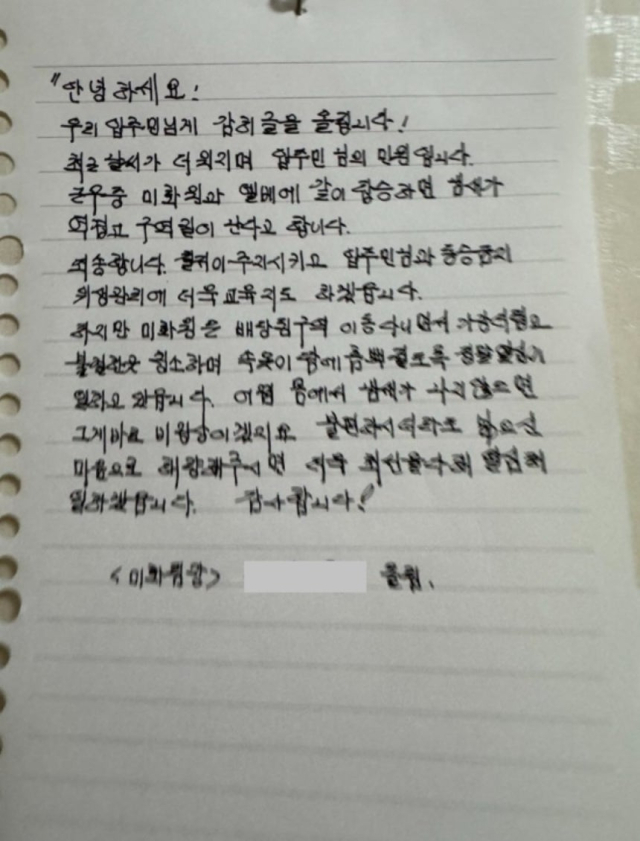 "안녕하세요!
우리 입주민님께 감히 글을 올립니다!
최근 날씨가 더워지며 입주민님의 민원입니다.
근무중 미화원과 엘베에 같이 탑승하면 땀냄새가
역겹고 구역질이 난다고 합니다.
죄송합니다. 철저히 주지시키고 입주민님과 동승금지
위생관리에 더욱 교육지도 하겠습니다.
하지만 미화원은 배당된 구역 이동다니면서
청소하며 속옷이 땀에 흠뻑 젖도록 정말 열심히
일하고 있습니다. 어찌 몸에서 땀냄새가 나지 않으면
그게바로 이겠지요 불편하시더라도 넓으신
마음으로 해량해주시면 더욱 최선을다해 열심히
일하겠습니다. 감사합니다!
<미화원장> 올림.